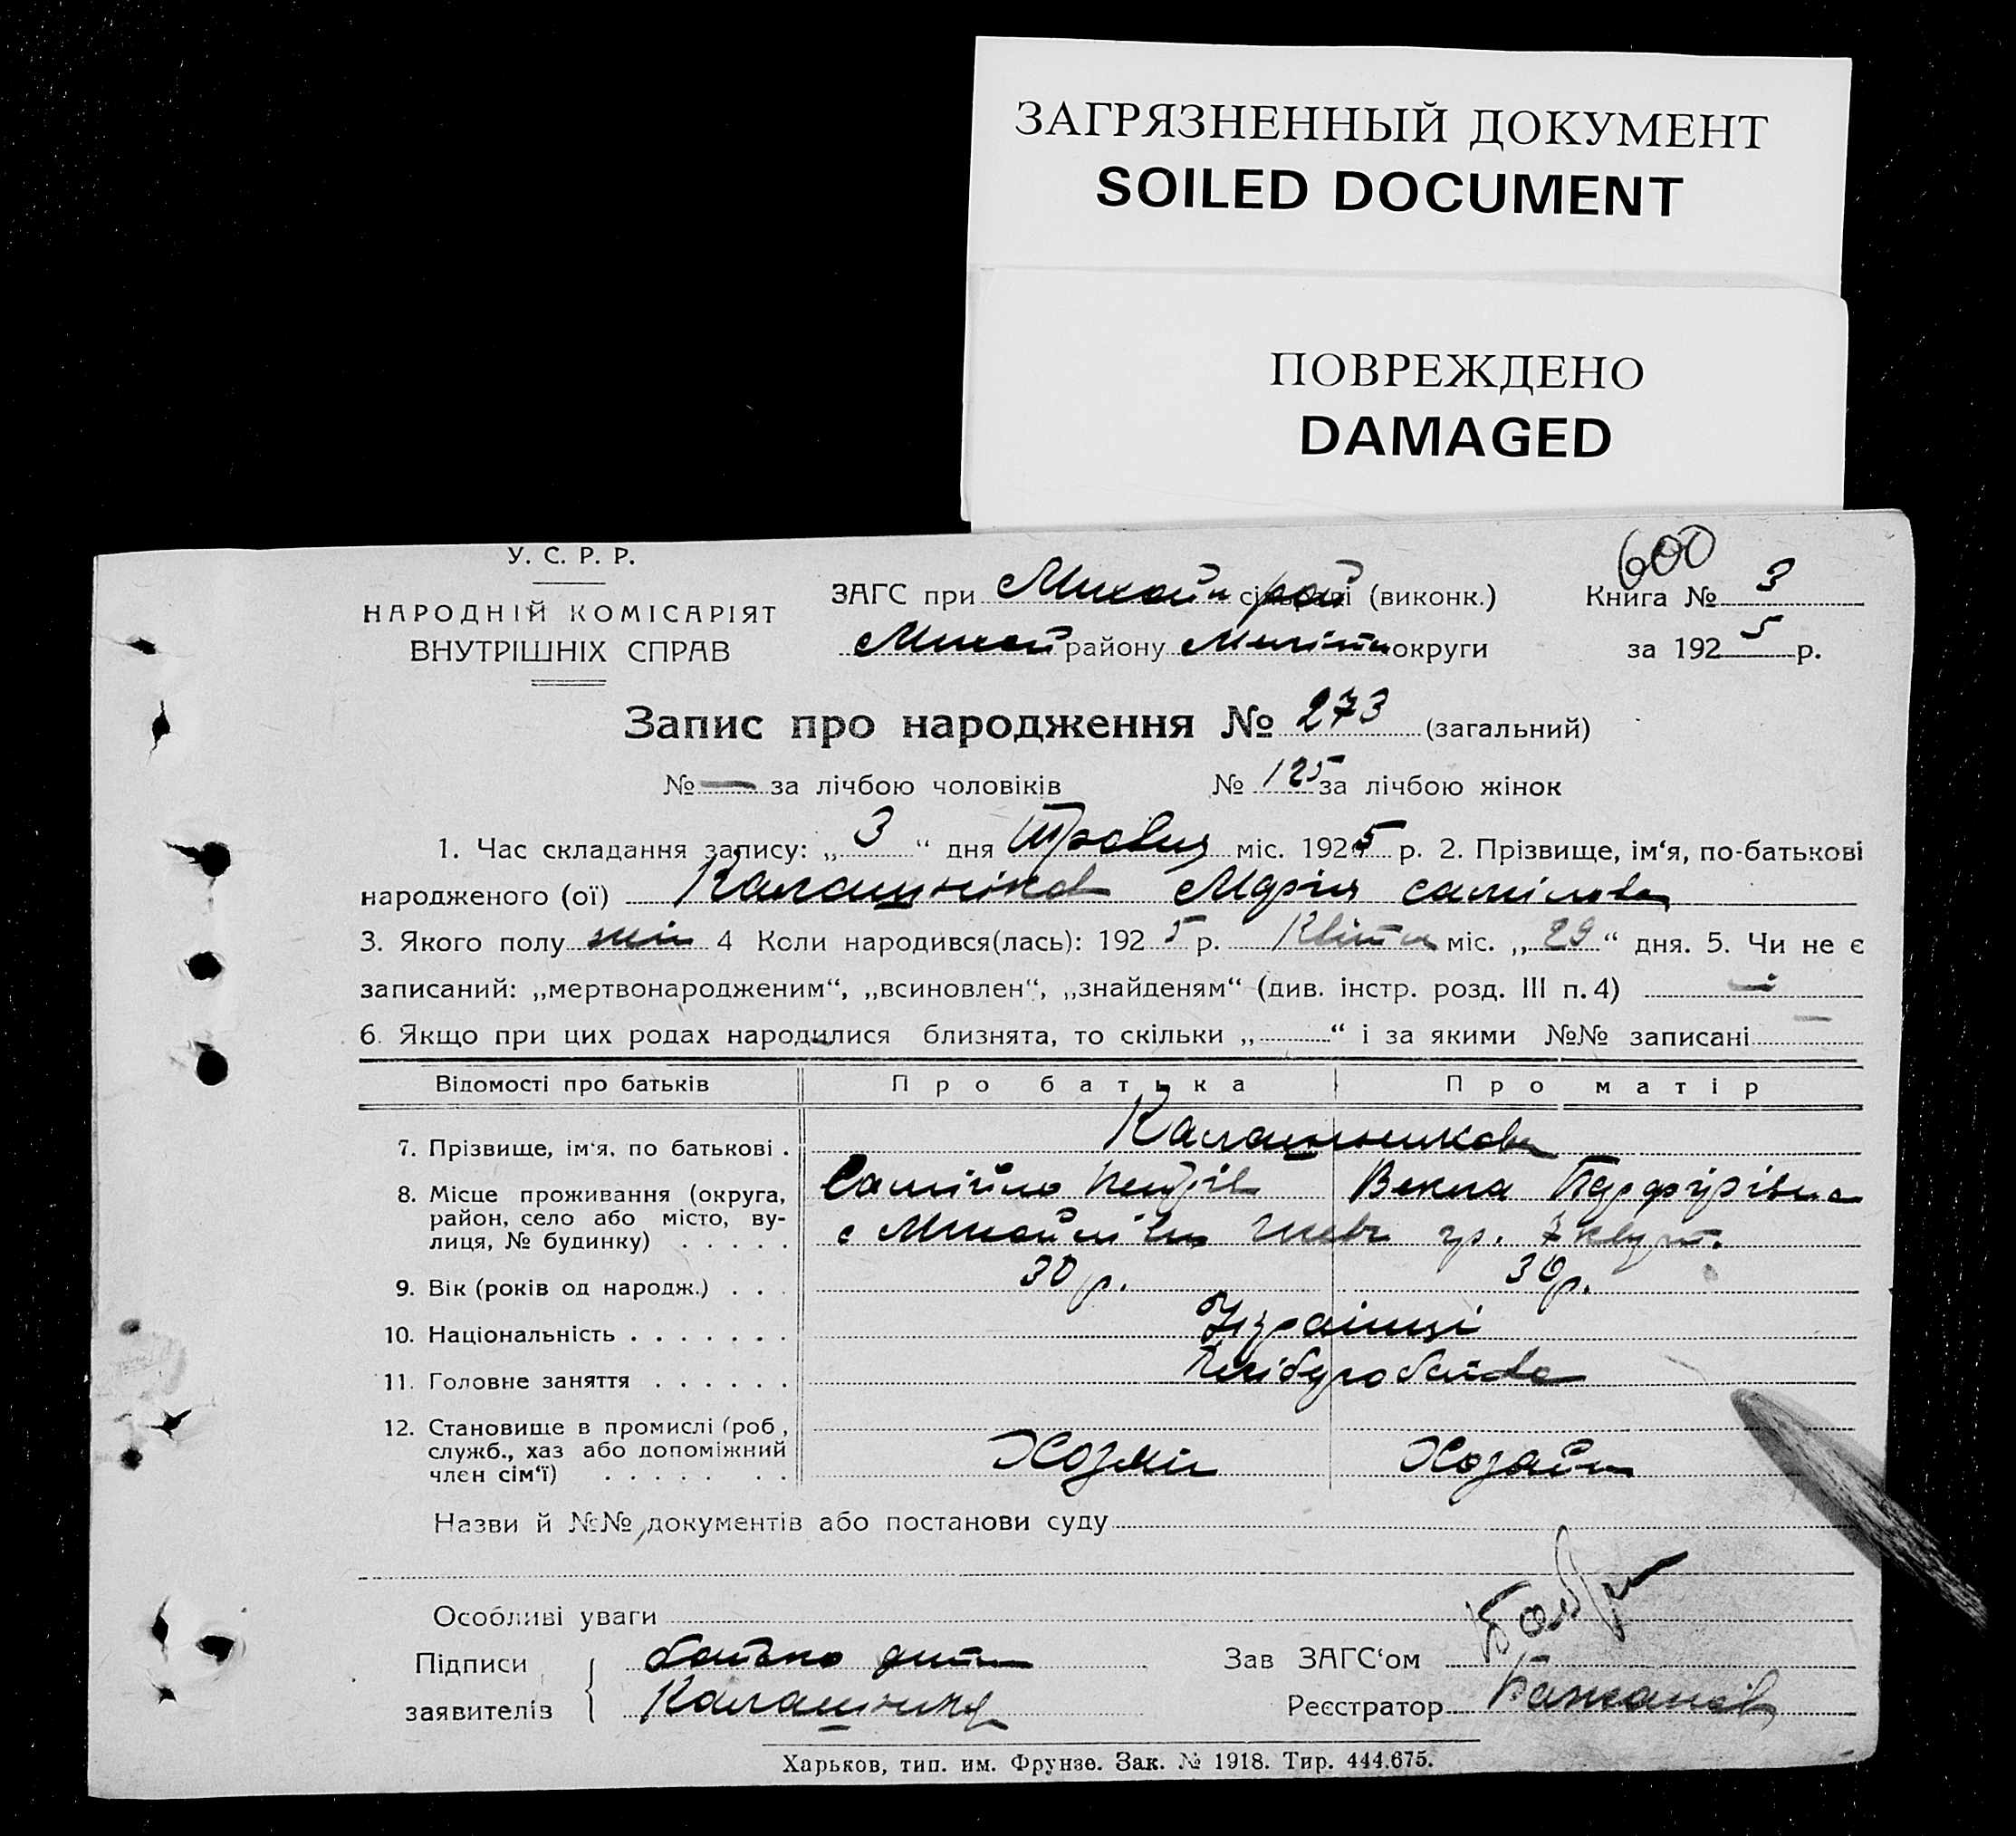 ЗАГРЯЗНЕННЫЙ ДОКУМЕНТ
SOILED DOCUMENT
ПОВРЕЖДЕНО
DAMAGED
600
У. С. Р. Р.
НАРОДНІЙ КОМІСАРІЯТ
ВНУТРІШНІХ СПРАВ
ЗАГС при Михайл сільраді рай (виконк.)
Михай району Меліт округи
Книга № 3
за 1925 р.
Запис про народження № 273 (загальний)
№ — за лічбою чоловіків № 125 за лічбою жінок
1. Час складання запису: „ 3 “ дня Травня міс. 1925 р. 2. Прізвище, ім‘я, по-батькові
народженого (ої) Калашнікова Марія Самілова
3. Якого полу жін 4 Коли народився(лась): 1925 р. Квітня міс. „ 29 “ дня. 5. Чи не є
записаний: „мертвонародженим“, „всиновлен“, „знайденям“ (див. інстр. розд. III п. 4) —
6. Якщо при цих родах народилися близнята, то скільки „ “ і за якими №№ записані —
Відомості про батьків Про батька Про матір
7. Прізвище, ім‘я, по батькові . Калашникова
8. Місце проживання (округа, район, село або місто, вулиця, № будинку) . . . . . Самійло Веклa Парфурівна
с Михайлівка гр. 7 кварт.
9. Вік (років од народж.) . . . 30 р. 30 р.
10. Національність . . . . . . . Українці
11. Головне заняття . . . . . . Хліборобство
12. Становище в промислі (роб, служб., хаз або допоміжний член сім‘ї) . . . . . . . Хозяїн Хозяйн
Назви й №№ документів або постанови суду
Особливі уваги
Підписи заявителів { батько дит
Калашник
Зав ЗАГС‘ом
Реєстратор
Харьков, тип. им. Фрунзе. Зак. № 1918. Тир. 444.675.